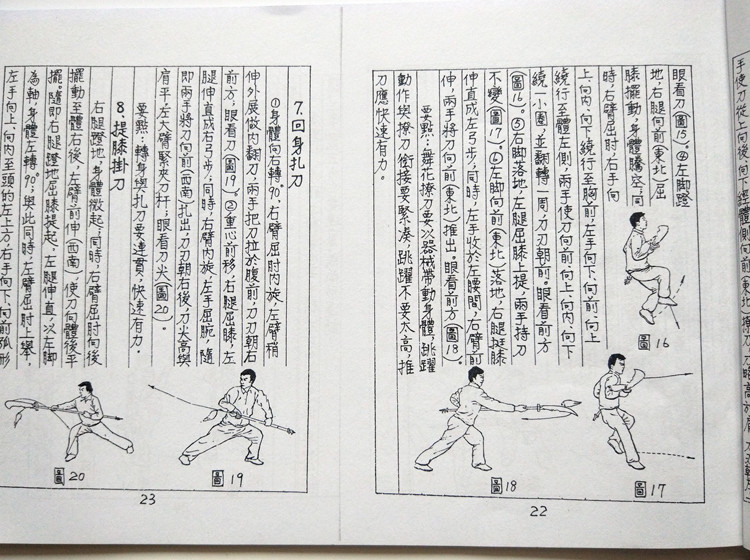 手使刀從上向後、向下經體側向前
眼看刀(圖15)。④左脚蹬
地,右腿向前(東北)屈
膝擺動,身體騰空;同
時,右臂屈肘,右手向
上、向内、向下繞行至胸前;左手向下、向前、向上
繞行至體左側,兩手使刀向前、向上、向内、向下
繞一小圈,並翻轉一周,刀刃朝前。眼看前方
(圖16)。⑤右脚落地,左腿屈膝上提,兩手持刀
不變(圖17)。⑥左脚向前(東北)落地,右腿挺膝
伸直成左弓步;同時,左手收於左腰間,右臂前
伸,兩手將刀向前(東北)推出。眼看前方(圖18)。
要點:舞花撩刀要以器械帶動身體,跳躍
動作與撩刀銜接要緊湊,跳躍不要太高,推
刀應快速有力。
圖16
圖17
圖18
22
7.回身扎刀
①身體向右轉90°,右臂屈肘内旋,左臂稍
伸外展做内翻刀,兩手把刀拉於腹前,刀刃朝右
前方,眼看刀(圖19)。②重心前移,右腿屈膝,左
腿伸直成右弓步;同時,右臂内旋,左手屈腕,隨
即兩手將刀向前(西南)扎出,刀刃朝右後,刀尖高與
肩平,左大臂緊夾刀杆;眼看刀尖(圖20)。
要點:轉身與扎刀要連貫,快速有力。
8.提膝掛刀
右腿蹬地,身體微起;同時,右臂屈肘向後
擺動至體右後,左臂前伸(西南),使刀向體後平
擺。隨即右腿蹬地屈膝提起,左腿伸直,以左脚
為軸,身體左轉90°;與此同時,左臂屈肘上舉,
左手向上、向内至頭的左上方,右手向下、向前弧形
圖19
圖20
23